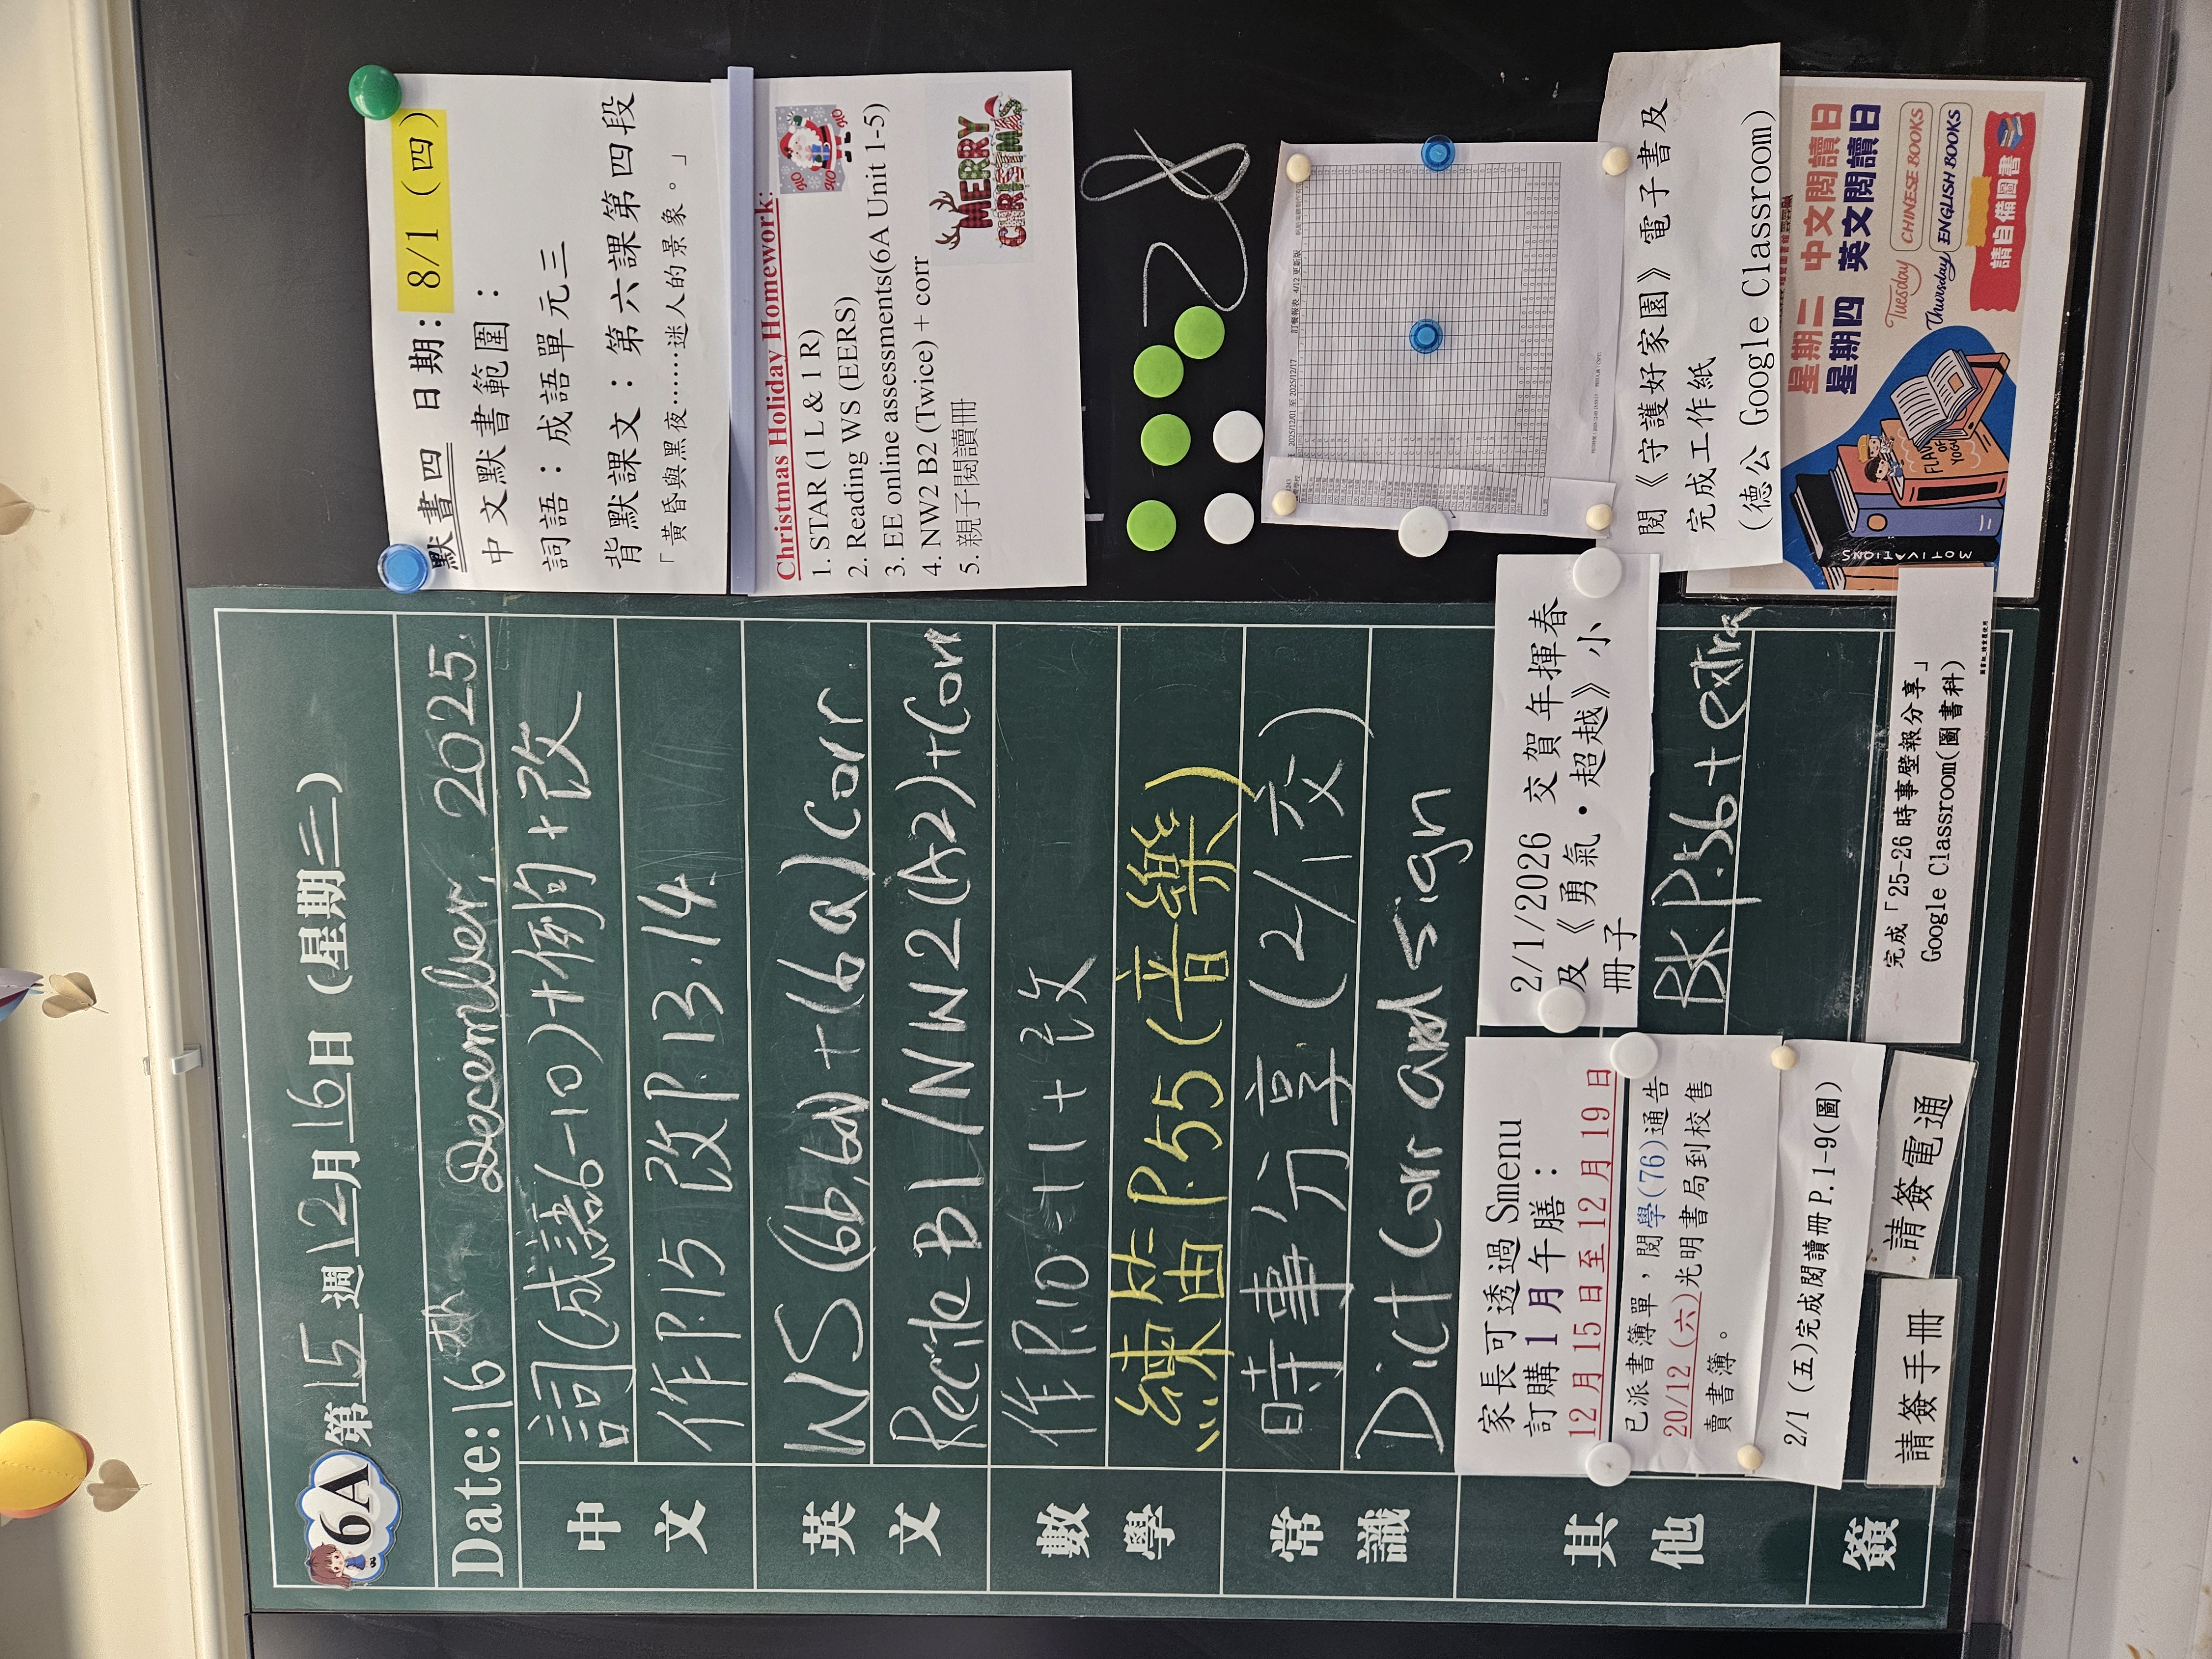 6A
第15週12月16日(星期二)
Date: 16th December, 2025.
中文
詞(成語6-10)+例句+改
作P.15 改P.13.14.
英文
WS(6b,6d)+(6a)Corr
Recite B1/NW2(A2)+Corr
數學
作P.10-11+改
練笛P.55(音樂)
常識
時事分享(2/1交)
Dict Corr and sign
其他
家長可透過 Smenu
訂購1月午膳:
12月15日至12月19日
已派書簿單,閱學(76)通告
20/12 (六)光明書局到校售
賣書簿。
2/1 (五)完成閱讀冊 P.1-9(圖)
2/1/2026 交賀年揮春
及《勇氣·超越》小
冊子
BK P.56 + extra
簽
請簽手冊
請簽電通
完成「25-26時事壁報分享」
Google Classroom(圖書科)
默書四 日期: 8/1 (四)
中文默書範圍:
詞語:成語單元三
背默課文:第六課第四段
「黃昏與黑夜……迷人的景象。」
Christmas Holiday Homework:
1. STAR (1 L & 1 R)
2. Reading WS (EERS)
3. EE online assessments(6A Unit 1-5)
4. NW2 B2 (Twice) + corr
5. 親子閱讀冊
HO HO
HO
MERRY
CHRISTMAS
28
2025/12/01 至 2025/12/17
訂餐報表 4/12 更新版
閱《守護好家園》電子書及
完成工作紙
(德公 Google Classroom)
星期二 中文閱讀日
星期四 英文閱讀日
Tuesday CHINESE BOOKS
Thursday ENGLISH BOOKS
請自備圖書
MOTIVATIONS